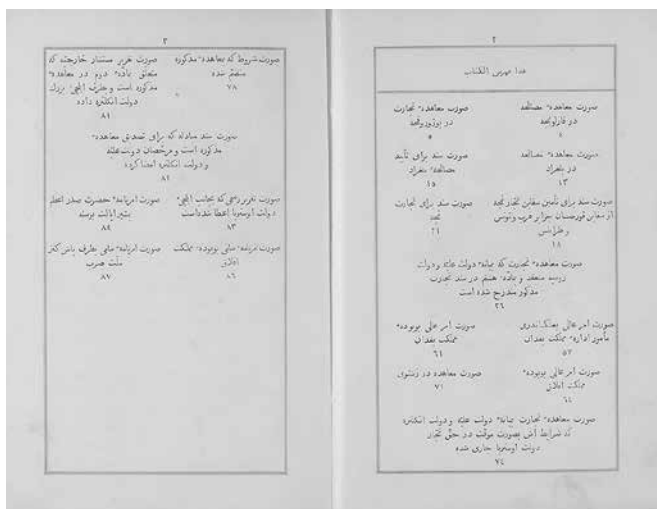 ٢
هذا فهرس الكتاب
صورت معاهدهٔ مصالحه
در قارلوفجه
صورت معاهدهٔ تجارت
در پوژوروفجه
٥
صورت معاهدهٔ مصالحه
در بلغراد
١٣
صورت سند برای تأیید
مصالحهٔ بلغراد
١٥
صورت سند برای تأمین سفاین تجّار نمچه
از سفاین قورصان جزایر غرب وتونس
وطرابلس
١٨
صورت سند برای تجارت
نمچه
٢١
صورت معاهدهٔ تجارت که میانهٔ دولت علیّه ودولت
روسیه منعقد و بمادّهٔ هشتم در سند تجارت
مذکور مندرج شده است
٢٦
صورت امر عالی
مأمور ادارهٔ مملکت بغدان
٥٧
صورت امر عالی بویودهٔ
مملکت بغدان
٦١
صورت امر عالی بویودهٔ
مملکت افلاق
٦٤
صورت معاهده در زشتوی
٧١
صورت معاهدهٔ تجارت میانهٔ دولت علیّه ودولت انکلتره
که شرایط آش بصورت موقّت در حقّ تجّار
دولت اوستریا جاری شده
٧٤
٣
صورت شروط که بمعاهدهٔ مذکوره
منضمّ شده
٧٨
صورت تحریر مستشار خارجیّه که
متعلّق بمادّهٔ دوم در معاهدهٔ
مذکوره است وبطرف ایلچیٔ بزرك
دولت انکلتره داده
٨١
صورت سند مبادله که برای تصدیق معاهدهٔ
مذکوره است ومرخّصان دولت علیّه
ودولت انکلتره امضا کرده
٨١
صورت تقریر رسمی که بجانب ایلچیٔ
دولت اوستریا اعطا شده است
٨٣
صورت امرنامهٔ حضرت صدر اعظم
بمشیر ایالت بوسنه
٨٤
صورت امرنامهٔ سامی بویودهٔ مملکت
افلاق
٨٦
صورت امرنامهٔ سامی بطرف باش کنز
ملّت صرب
٨٧